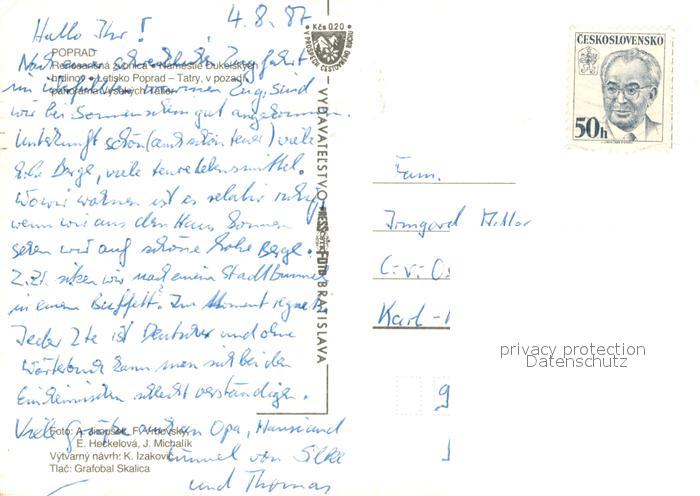 4.8.87
Hallo Ihr!
POPRAD
Renesančná zvonica • Námestie Dukelských
hrdinov • Letisko Poprad – Tatry, v pozadí
panoráma Vysokých Tatier
im Zug. Sind
wir bei Sonnenschein gut angekommen.
Unterkunft schön (auch schön teuer) viele
hohe Berge, viele teure Lebensmittel.
Wo wir wohnen ist es relativ ruhig
wenn wir aus dem Haus kommen
sehen wir auf schöne hohe Berge.
Z.Zt. sitzen wir nach einem Stadtbummel
in einem Buffett. Im Moment regnet's
Jeder 2te ist Deutscher und ohne
Wörterbuch kann man sich bei den
Einheimischen schlecht verständigen.
Viele Grüße Opa,
von Silke
und Thomas
Foto: A. Jiroušek, F. Vrbovský,
E. Heckelová, J. Michalík
Výtvarný návrh: K. Izakovič
Tlač: Grafobal Skalica
Kčs 0.20
VYDAVATEĽSTVO PRESSFOTO BRATISLAVA
ČESKOSLOVENSKO
50h
Fam.
Irmgard
C. v. Os
Karl-
9
privacy protection
Datenschutz